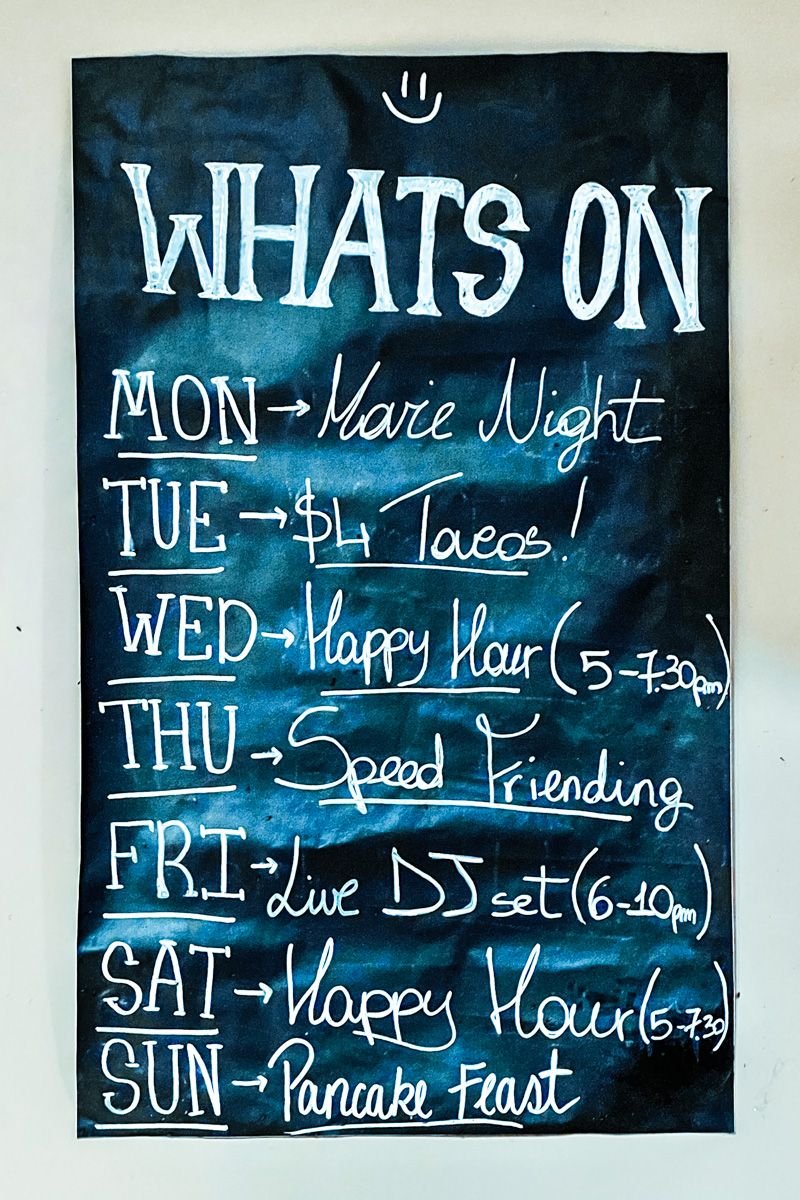 WHATS ON
MON → Movie Night
TUE → $4 Tacos!
WED → Happy Hour (5-7.30pm)
THU → Speed Friending
FRI → Live DJ set (6-10pm)
SAT → Happy Hour (5-7.30)
SUN → Pancake Feast